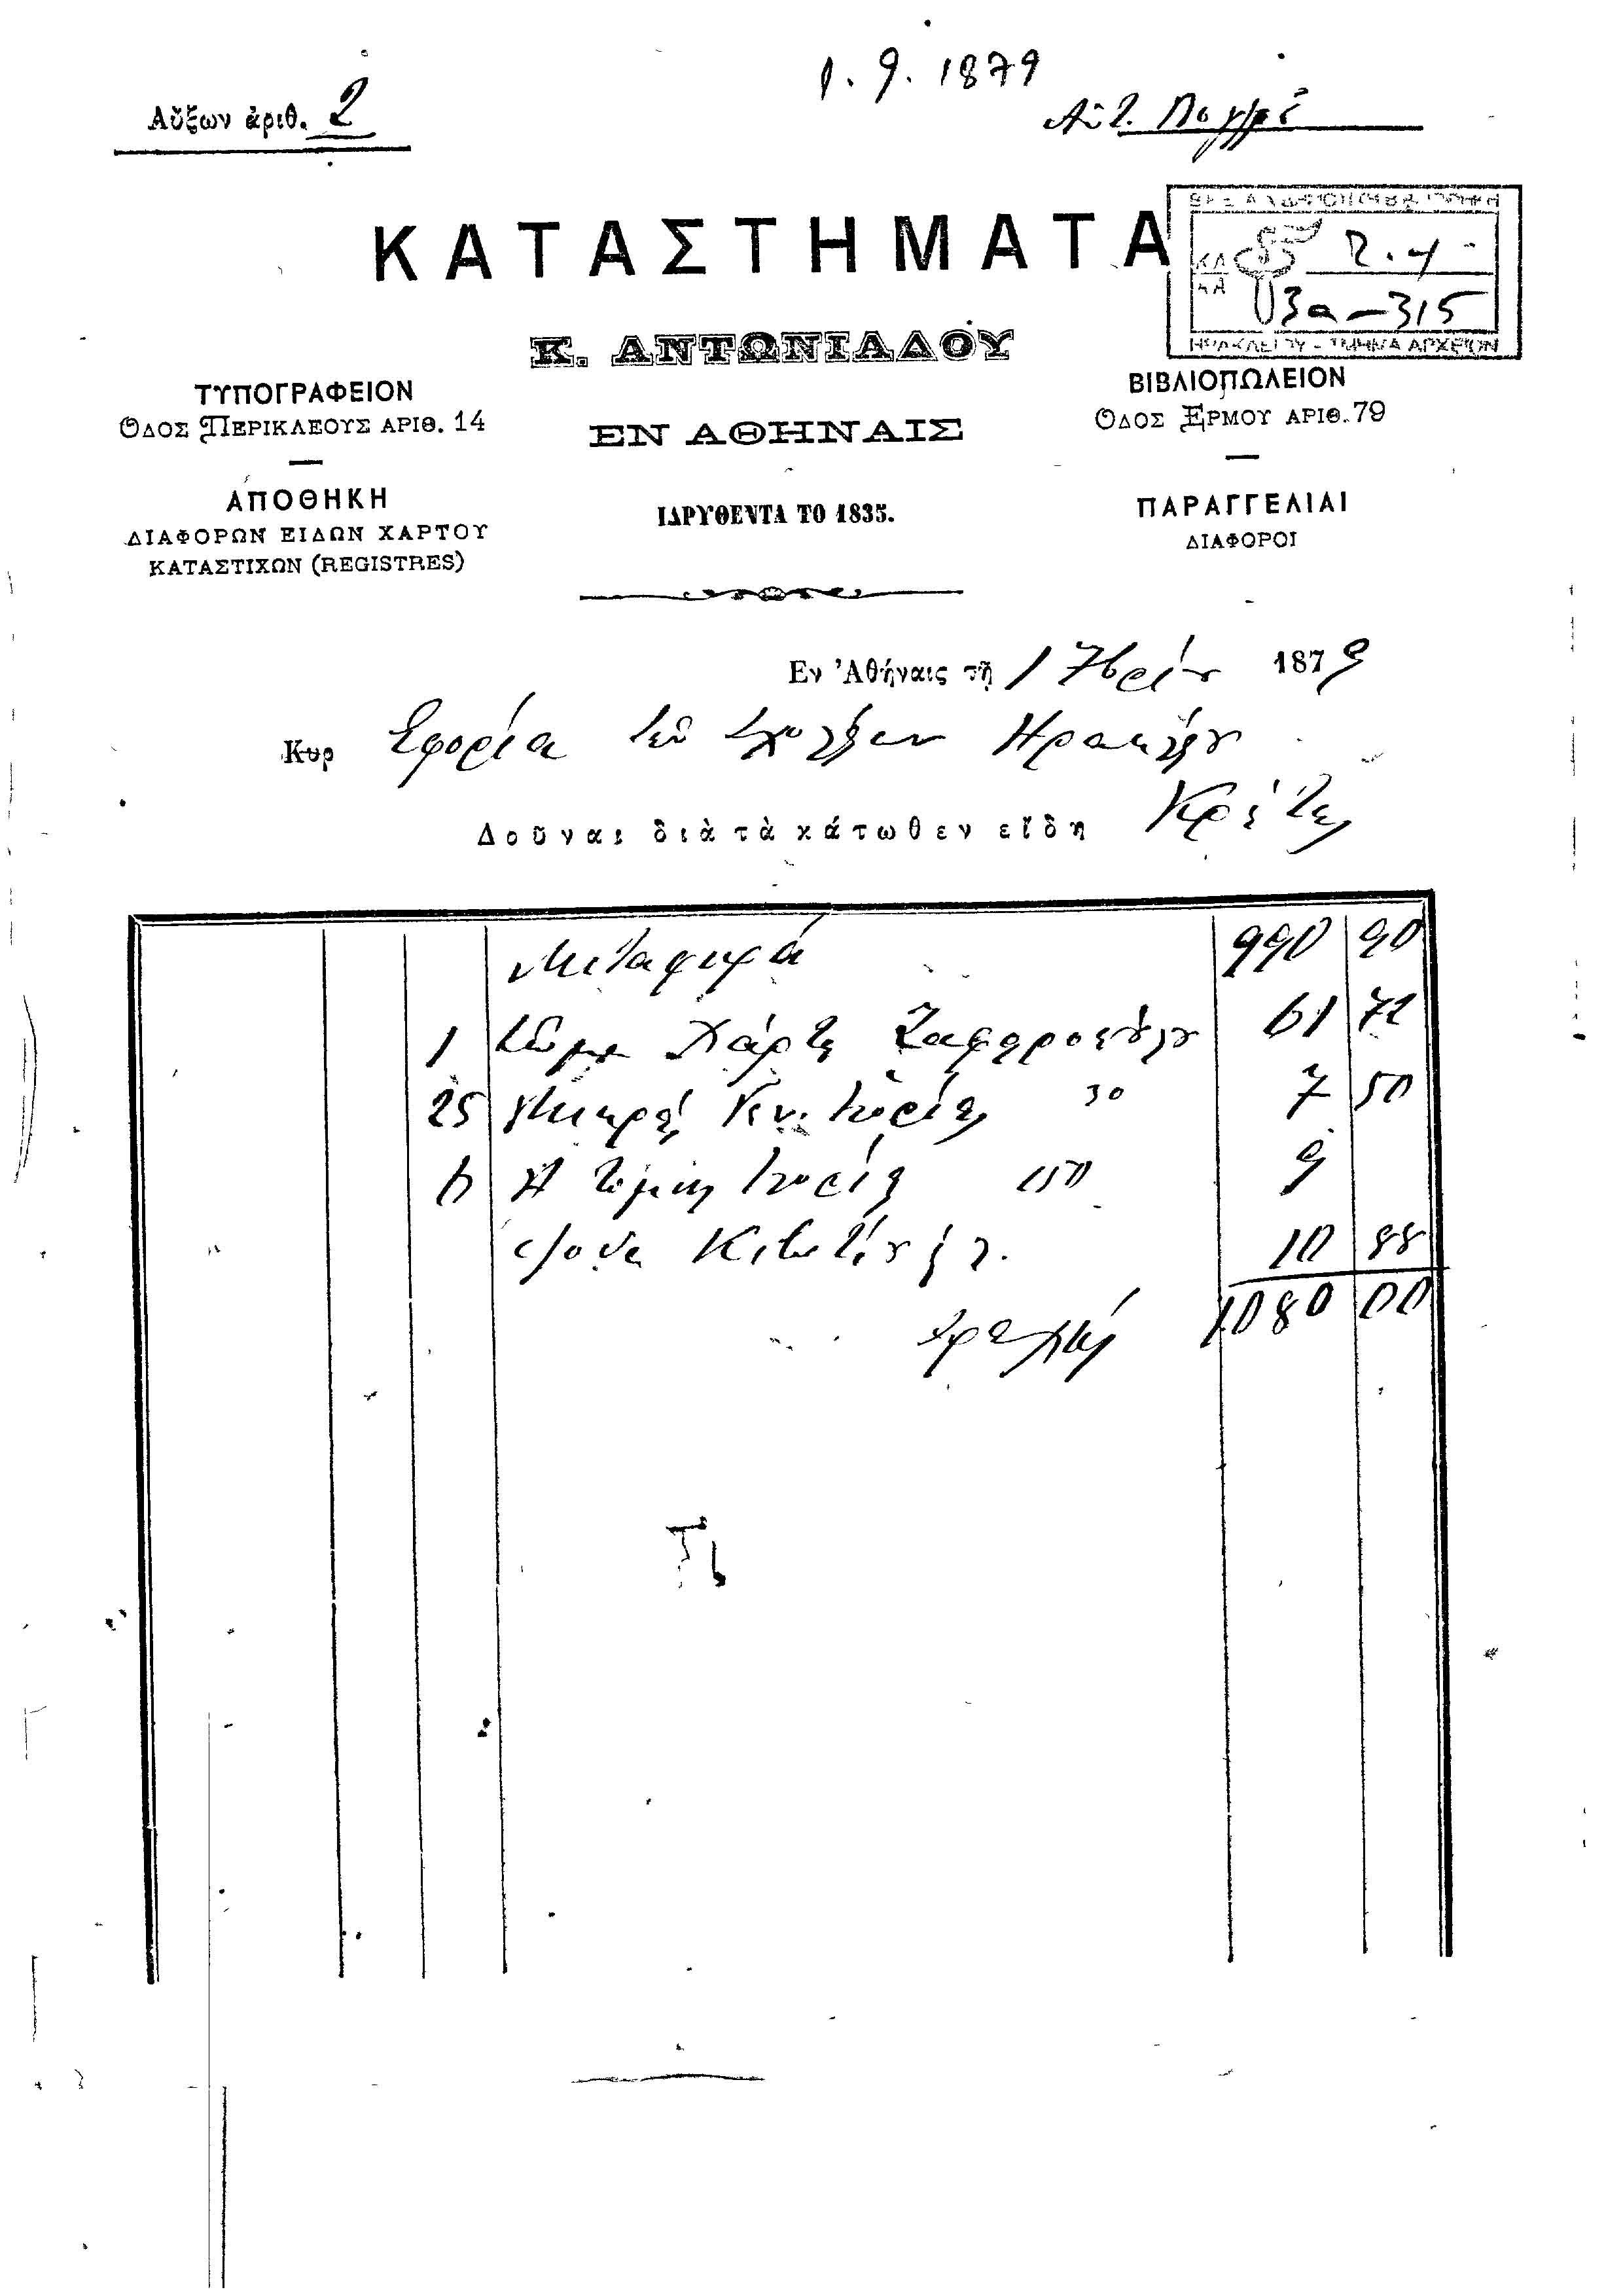 1. 9. 1879
Αὔξων ἀριθ. 2
ΚΑΤΑΣΤΗΜΑΤΑ
2.4
3α-315
ΗΡΑΚΛΕΙΟΥ - ΤΜΗΜΑ ΑΡΧΕΙΩΝ
Κ. ΑΝΤΩΝΙΑΔΟΥ
ΕΝ ΑΘΗΝΑΙΣ
ΙΔΡΥΘΕΝΤΑ ΤΟ 1835.
ΤΥΠΟΓΡΑΦΕΙΟΝ
ΟΔΟΣ ΠΕΡΙΚΛΕΟΥΣ ΑΡΙΘ. 14
ΑΠΟΘΗΚΗ
ΔΙΑΦΟΡΩΝ ΕΙΔΩΝ ΧΑΡΤΟΥ
ΚΑΤΑΣΤΙΧΩΝ (REGISTRES)
ΒΙΒΛΙΟΠΩΛΕΙΟΝ
ΟΔΟΣ ΕΡΜΟΥ ΑΡΙΘ. 79
ΠΑΡΑΓΓΕΛΙΑΙ
ΔΙΑΦΟΡΟΙ
Εν Ἀθήναις τῇ 1 7βρίου 1879
Κυρ Ἐφορία τῶν Σχολείων Ηρακλείου
Δοῦναι διὰ τὰ κάτωθεν εἴδη Κρήτης
Μεταφορά 990 90
1 Χάρτης 61 72
25 Μικραί Γεν. Ἱστορίαι 30 7 50
6 Ἱστορίας 150 9
Κιβωτίου 10 88
Δραχμαί 1080 00